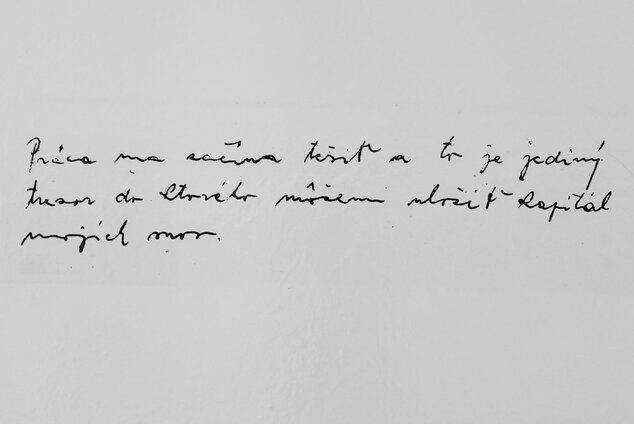 Práca ma začína tešiť a to je jediný
trezor do ktorého môžem uložiť kapitál
mojich snov.